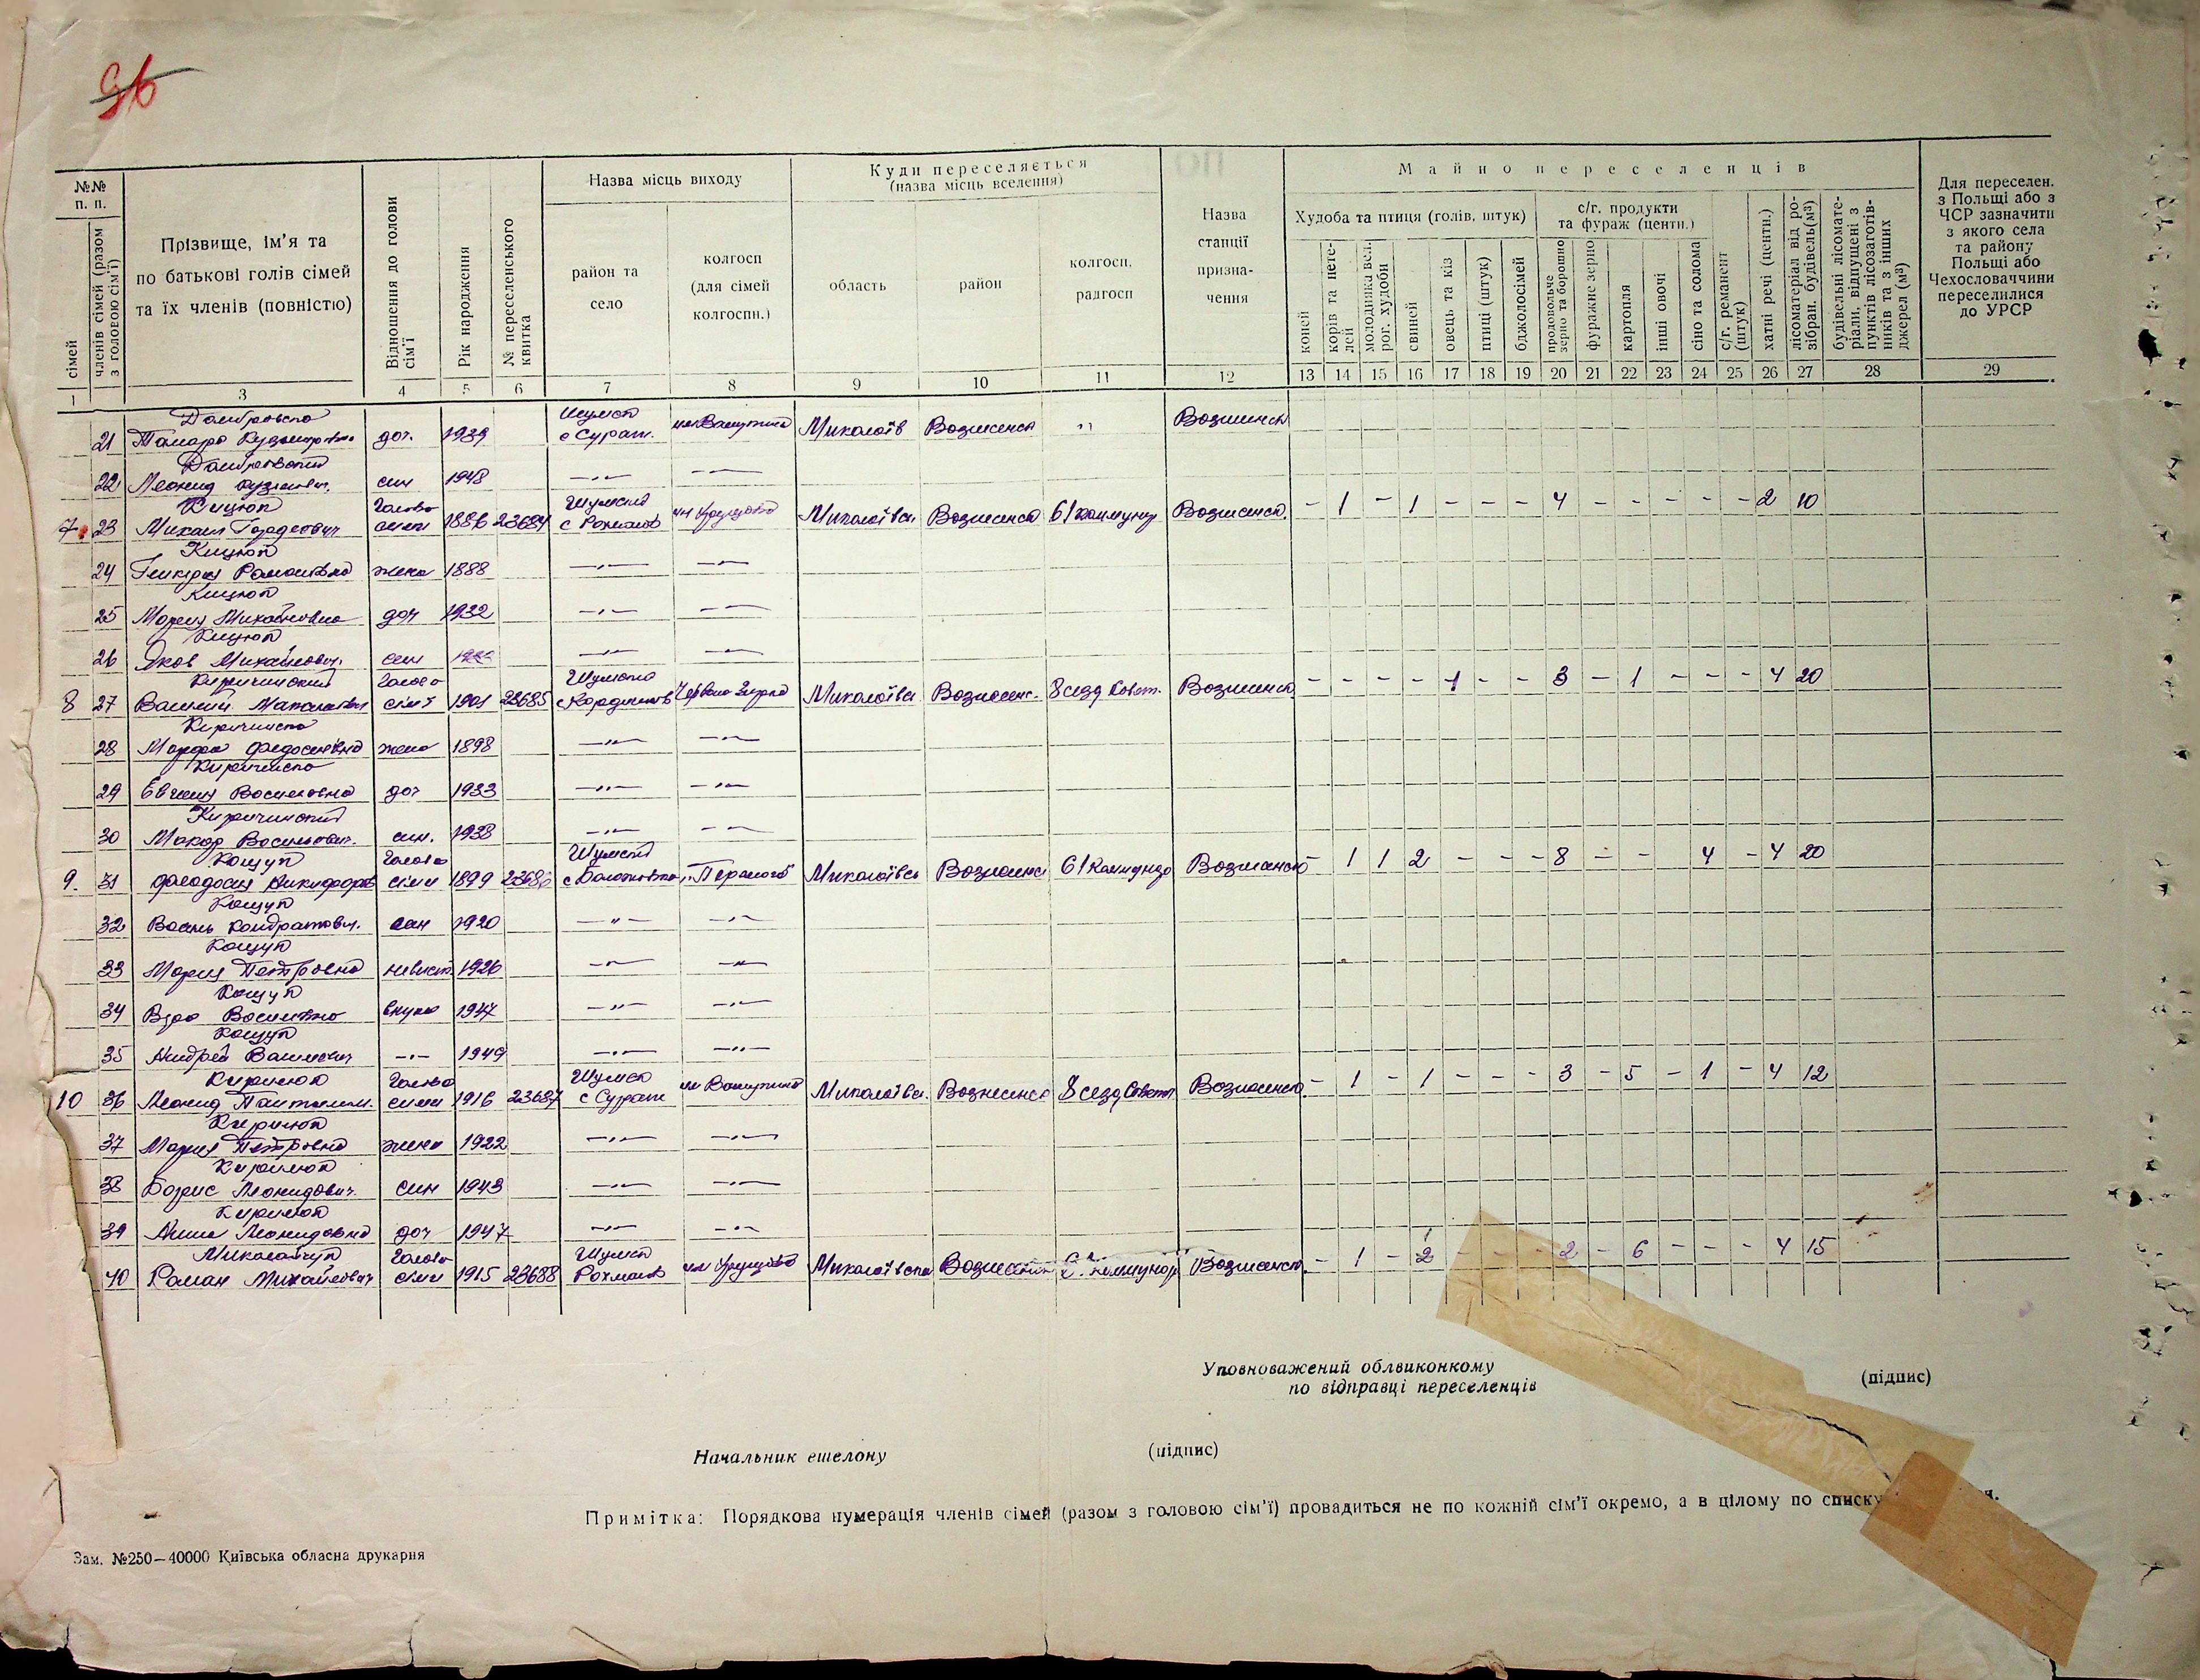 96
№№ п. п.
сімей
членів сімей (разом з головою сім'ї)
Прізвище, ім'я та
по батькові голів сімей
та їх членів (повністю)
Відношення до голови сім'ї
Рік народження
№ переселенського квитка
Назва місць виходу
район та
село
колгосп
(для сімей
колгоспн.)
Куди переселяється
(назва місць вселення)
область
район
колгосп,
радгосп
Назва
станції
призна-
чення
Майно переселенців
Худоба та птиця (голів, штук)
коней
корів та нете-
лей
молодника вел.
рог. худоби
свиней
овець та кіз
птиці (штук)
бджолосімей
с/г. продукти
та фураж (центн.)
продовольче
зерно та борошно
фуражне зерно
картопля
інші овочі
сіно та солома
с/г. реманент
(штук)
хатні речі (центн.)
лісоматеріал від ро-
зібран. будівель(м³)
будівельні лісомате-
ріали, відпущені з
пунктів лісозаготів-
ників та з інших
джерел (м³)
Для переселен.
з Польщі або з
ЧСР зазначити
з якого села
та району
Польщі або
Чехословаччини
переселилися
до УРСР
1 3 4 5 6 7 8 9 10 11 12 13 14 15 16 17 18 19 20 21 22 23 24 25 26 27 28 29
Домбровска Шумск
21 Тамара доч. 1939 с Сураж. им Ватутина Миколаїв Вознесенск " Вознесенск
Домбровский
22 Леонид син 1948 —"— —"—
Кицюк Голова Шумский
7 23 Михаил Гордеович сем 1886 23684 с Рохманов им Хрущова Миколаївск Вознесенск 61 Коммунар Вознесенск. - 1 - 1 - - - 4 - - - - - 2 10
Кицюк
24 Романівна жена 1888 —"— —"—
Кицюк
25 Мария Михайловна доч 1932 —"— —"—
Кицюк
26 Яков Михайлович. син —"— —"—
Киричинский Голова Шумски
8 27 Василий сімї 1901 23685 Червона Зирка Миколаївск Вознесенс. 8 сезд Совет. Вознесенск - - - - 1 - - 3 - 1 - - - 4 20
Киричинска
28 Марфа Федосеївна жена 1898 —"— —"—
Киричинска
29 Евгения Васильовна доч 1933 —"— —"—
Киричинский
30 Макар Васильович. син. 1938 —"— —"—
Кощук Голова Шумский
9. 31 Феодосия Никифоров сімї 1899 23686 Перемога Миколаївск Вознесенс 61 Коммунар Вознесенск - 1 1 2 - - - 8 - - 4 - 4 20
Кощук
32 Кондратович. син 1920 —"— —"—
Кощук
33 Мария Петровна невист 1926 —"— —"—
Кощук
34 Вера внука 1947 —"— —"—
Кощук
35 Андрей Васильович —"— 1949 —"— —"—
Кирилюк Голова Шумск
10 36 Леонид сімї 1916 23687 с Сураж им Ватутина Миколаївск. Вознесенск 8 сезд Совет Вознесенск. - 1 - 1 - - - 3 - 5 - 1 - 4 12
Кирилюк
37 Мария Петровна жена 1922 —"— —"—
Кирилюк
38 Борис Леонидович. син 1943 —"— —"—
Кирилюк
39 Анна Леонидовна доч 1947 —"— —"—
Миколайчук Голова Шумск
40 Роман Михайлович сімї 1915 23688 Рохманов им Хрущова Миколаївска Вознесенск Вознесенск. - 1 - 2 - - - 2 - 6 - - - 4 15
Уповноважений облвиконкому
по відправці переселенців
(підпис)
Начальник ешелону (підпис)
Примітка: Порядкова нумерація членів сімей (разом з головою сім'ї) провадиться не по кожній сім'ї окремо, а в цілому по списку
Зам. №250—40000 Київська обласна друкарня